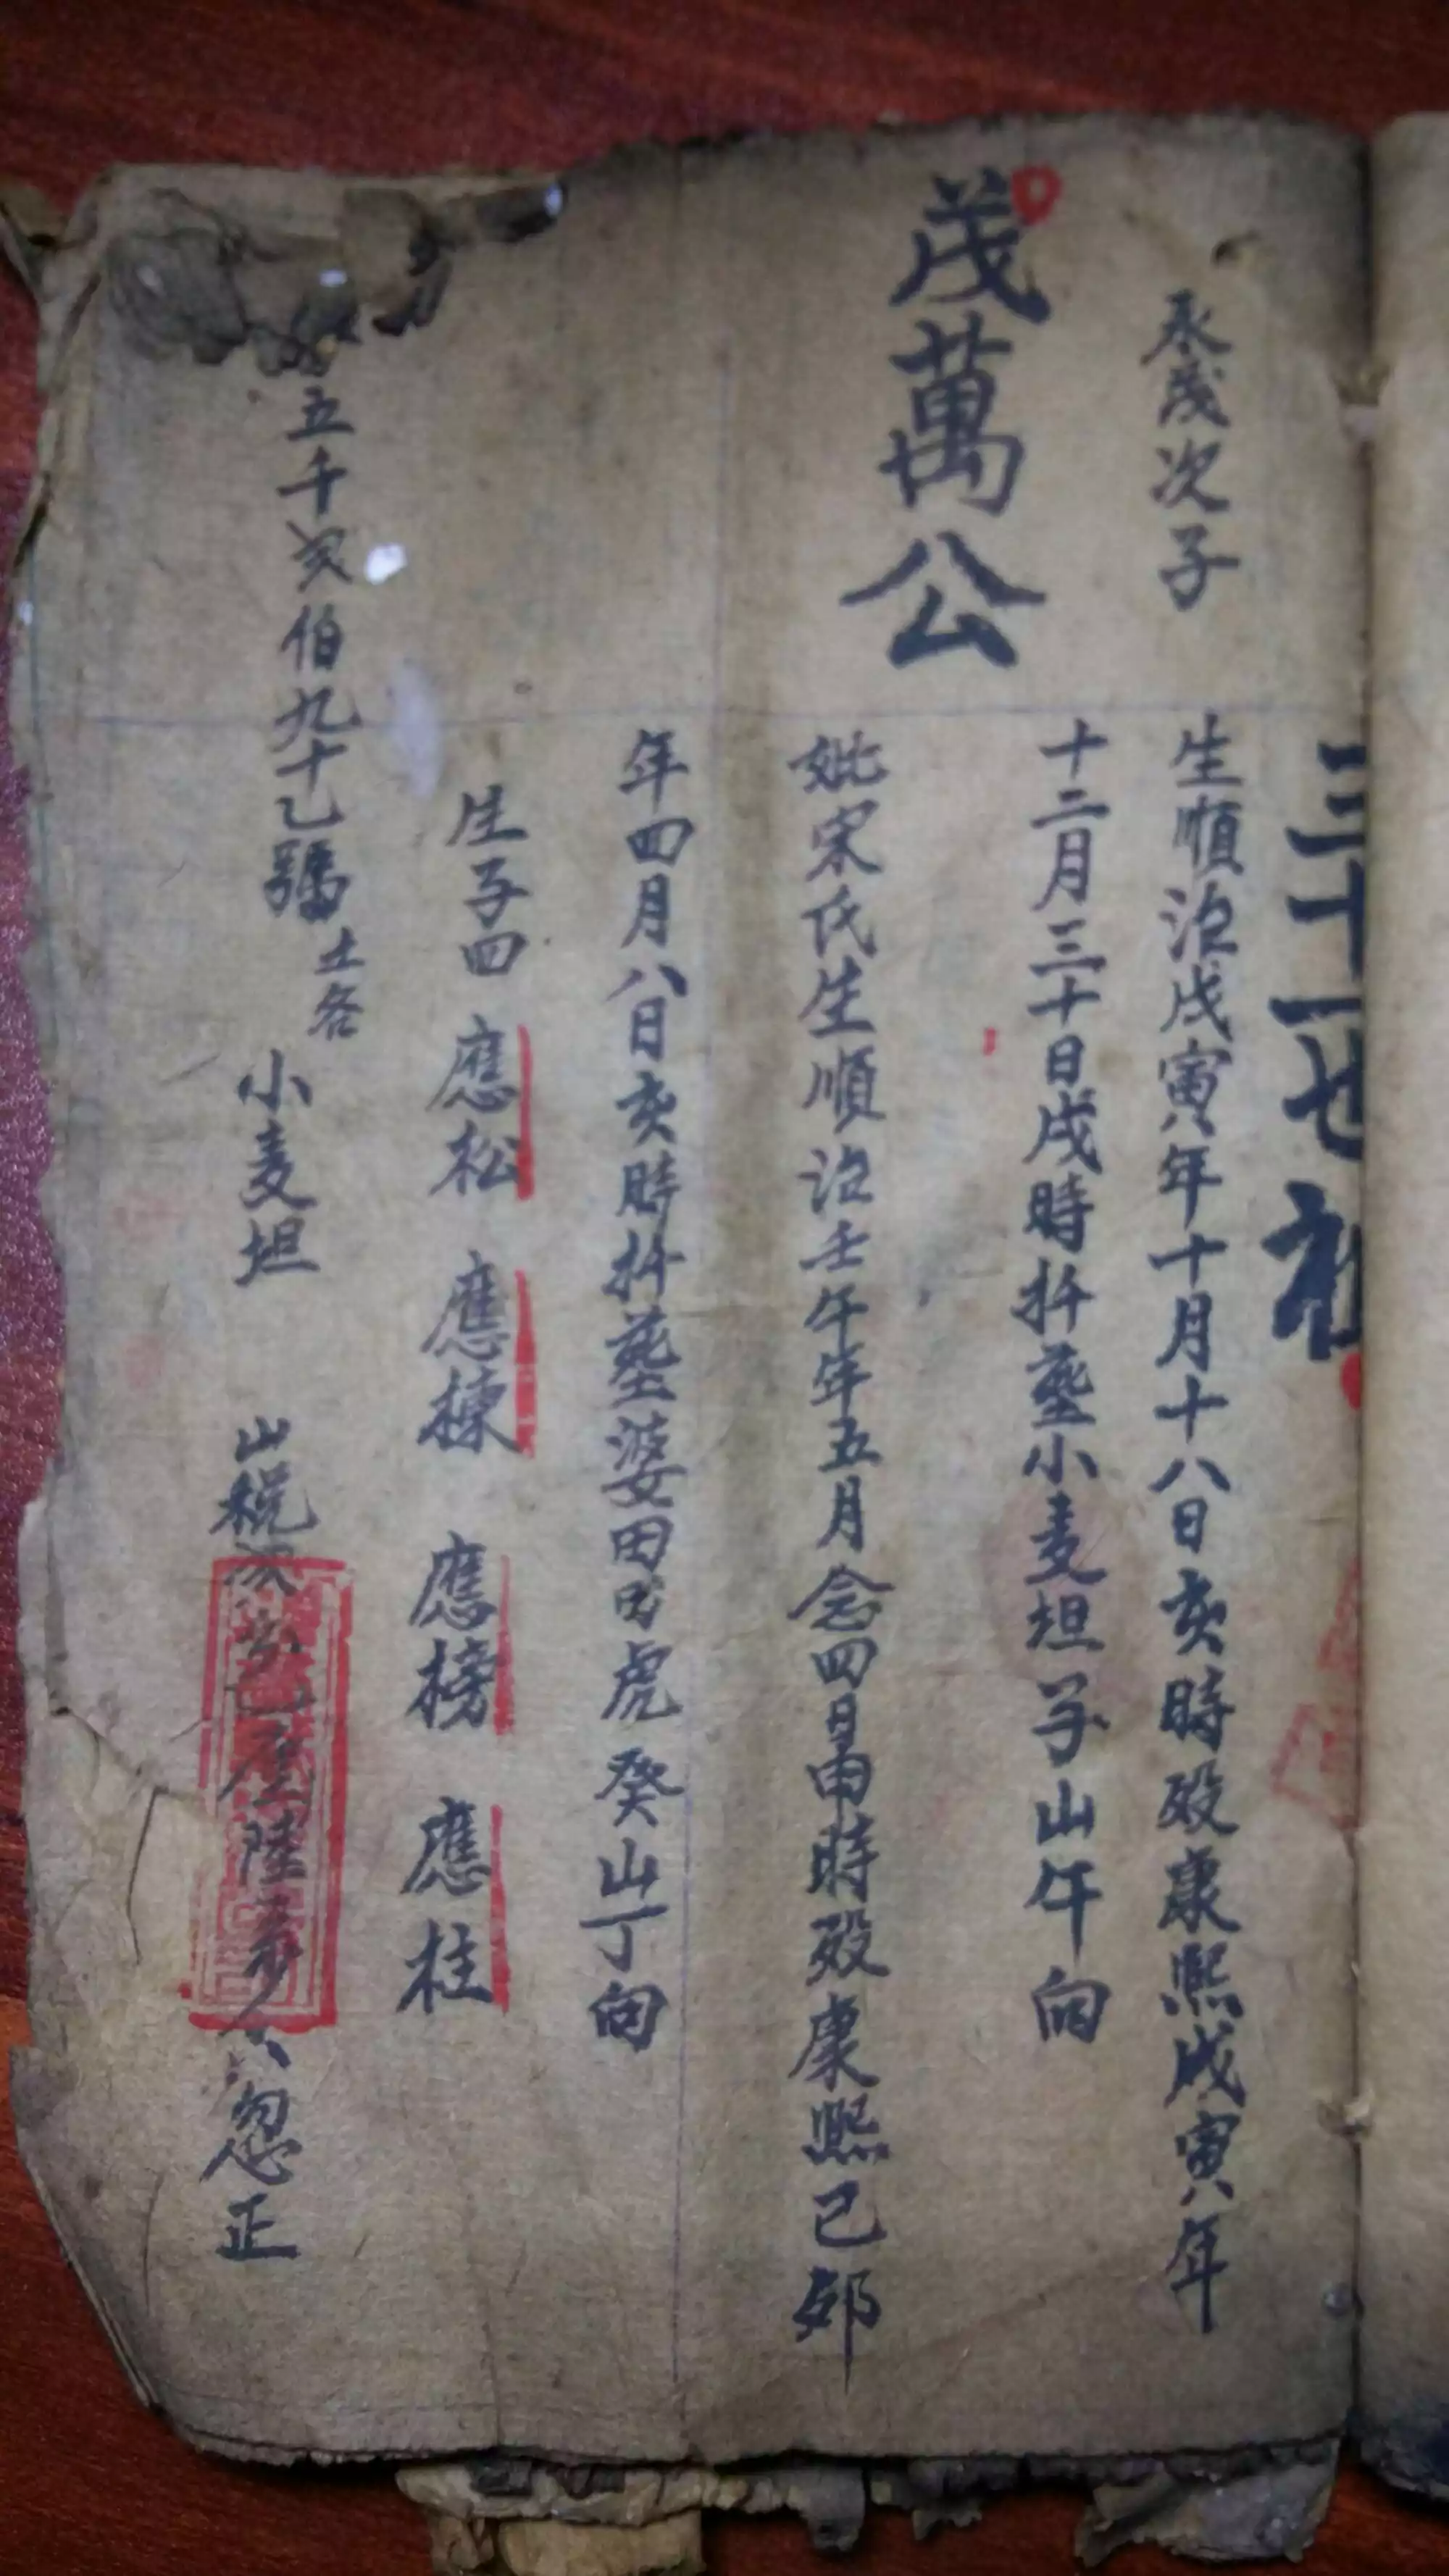 三十一世祖
承茂次子
生順治戊寅年十月十八日亥時歿康熙戊寅年
茂萬公
十二月三十日戌時扦塟小麦坦子山午向
妣宋氏生順治壬午年五月念四日申時歿康熙己夘
年四月八日亥時扦塟婆田虎癸山丁向
生子四 應松 應揀 應榜 應柱
五千 伯九十乙號 土名 小麦坦 山税 陸 忽正